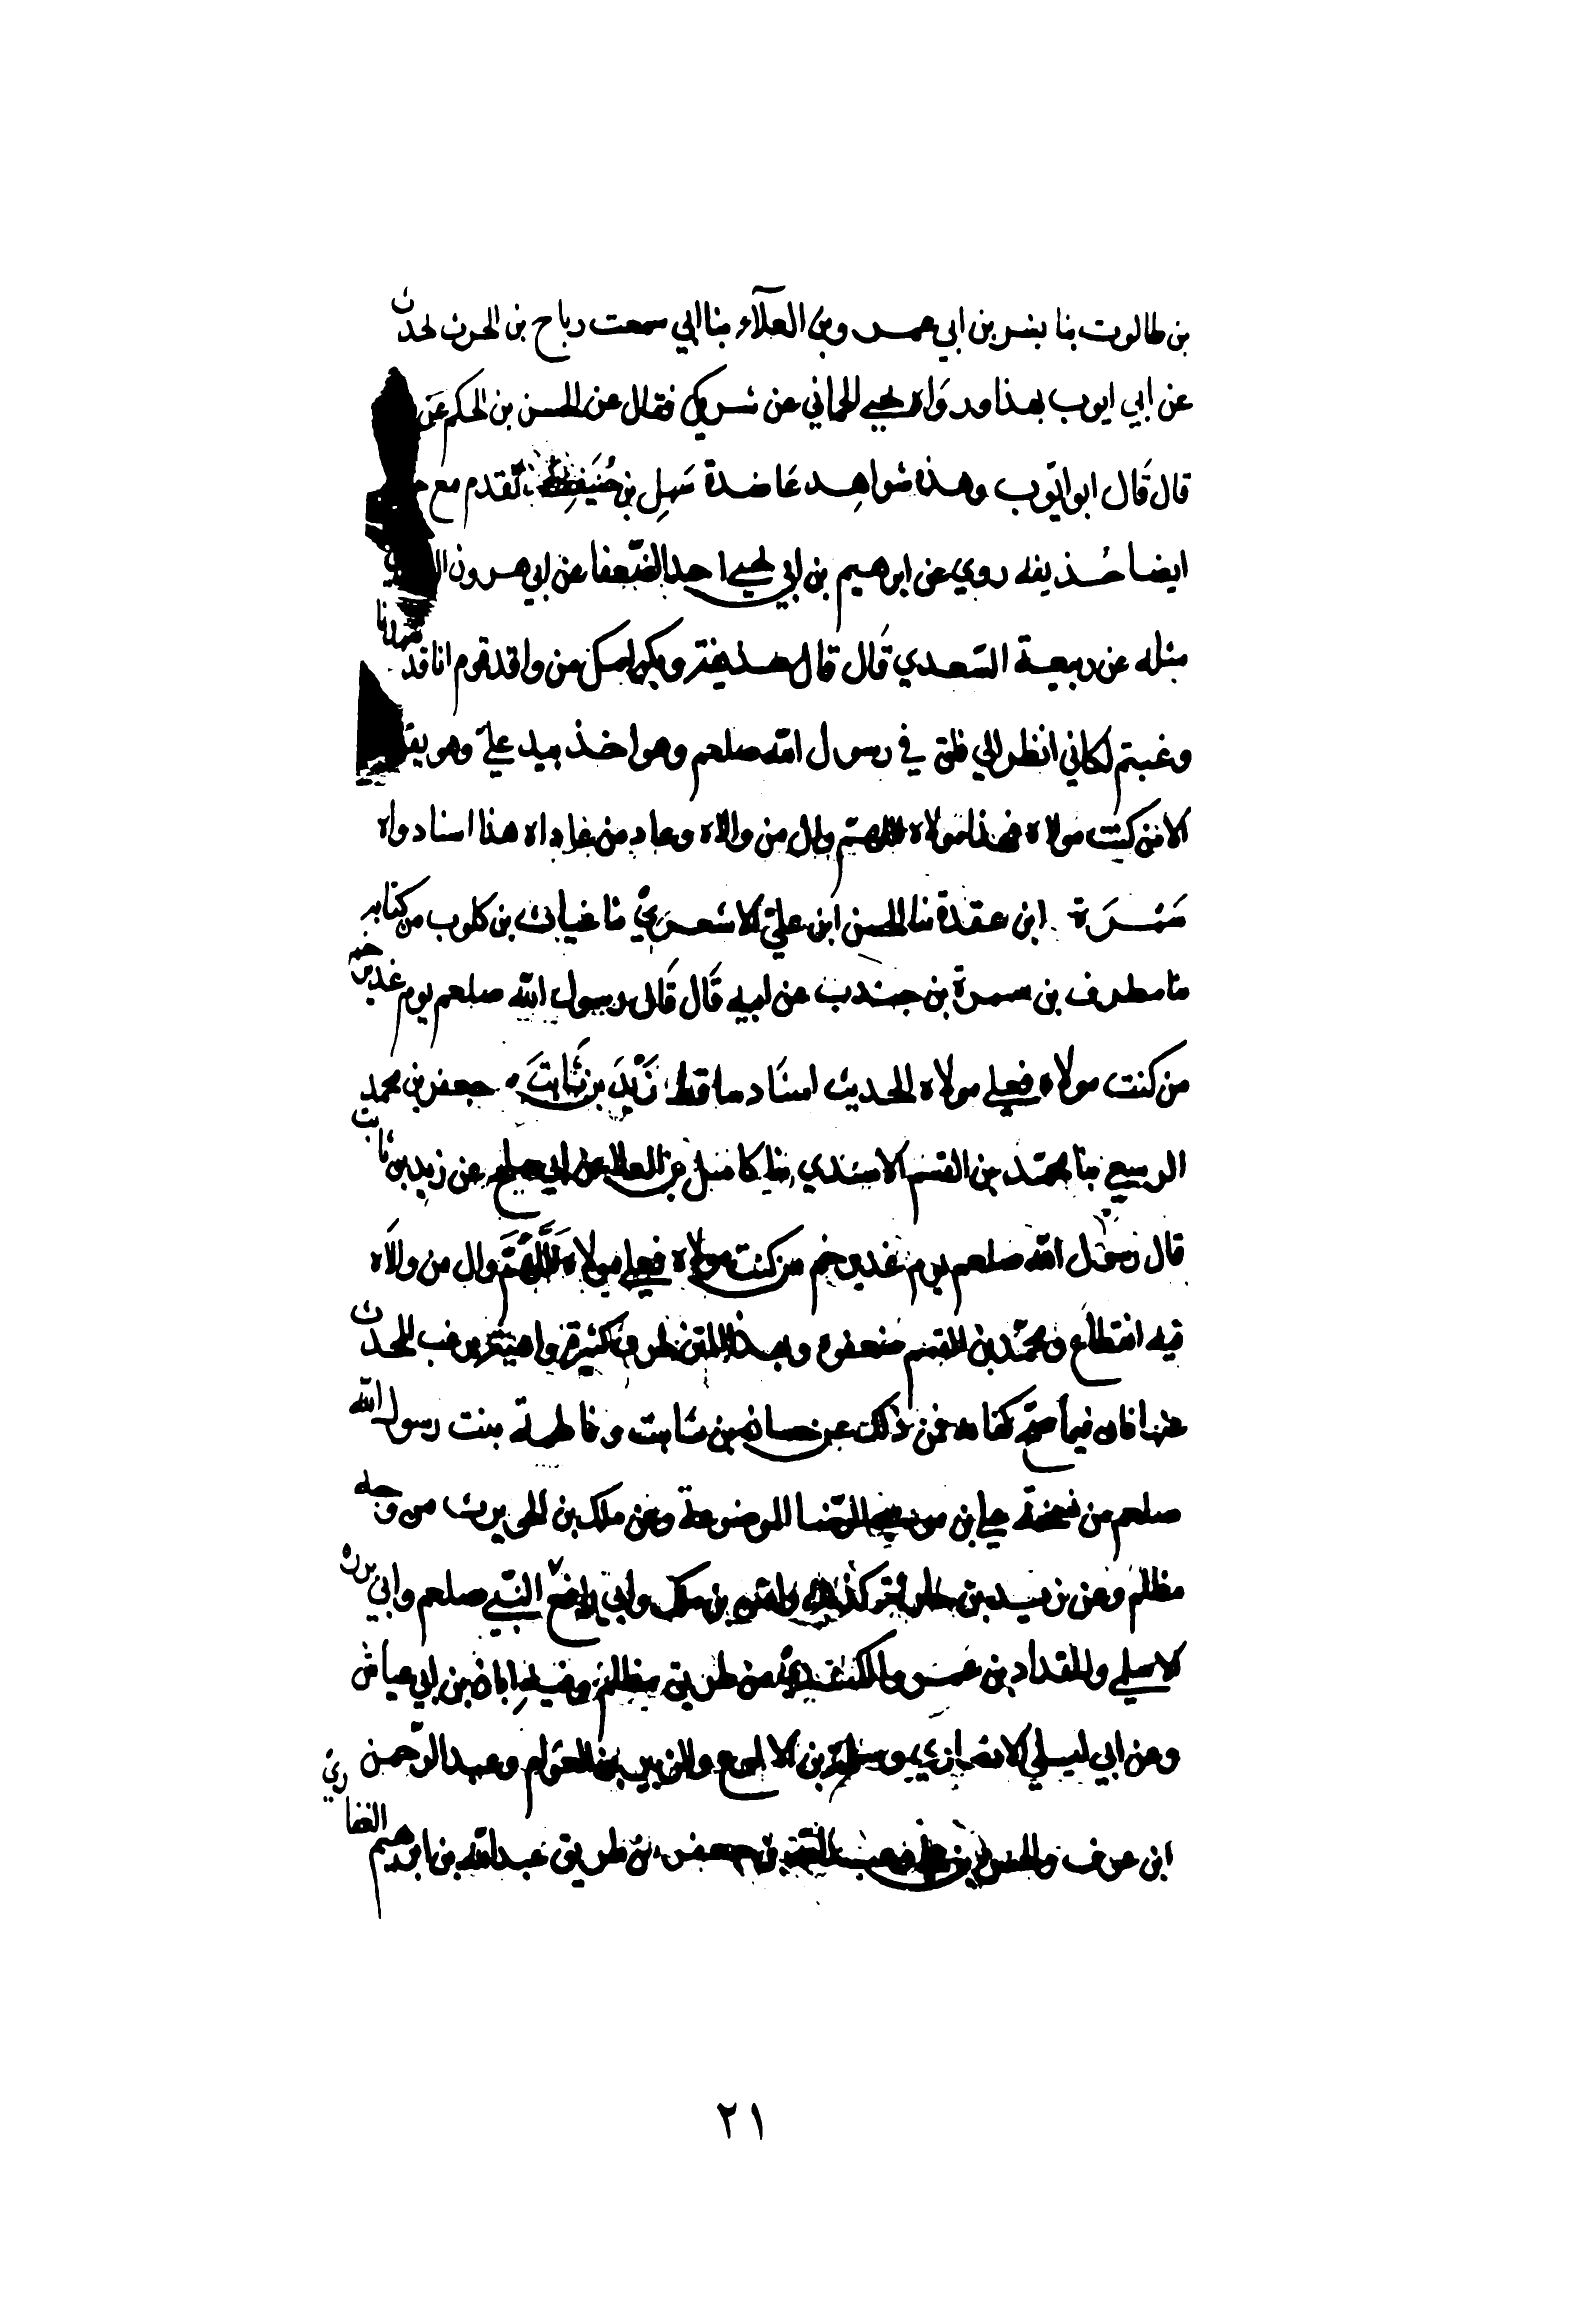 بن طالوت بنا بشر بن ابي عمرو بن العلآء بنا ابي سمعت رباح بن الحرث يحدث
عن ابي ايوب بهذا ورواه يحيى الحماني عن شريك فقال عن الحسن بن الحكم عن
قال قال ابو ايوب وهذه شواهد عاضدة سهل بن حنيف تقدم مع
ايضا حذيفه روي عن ابرهيم بن ابي يحيى احد الضعفا عن ابي هرون
مثله عن ربيعة السعدي قال قال حذيفة قوم انا قد شهدنا
وغبتم لكاني انظر الي في رسول الله صلعم وهو اخذ بيد علي وهو يقو
الا من كنت مولاه فهذا مولاه اللهم وال من والاه وعاد من عاداه هذا اسناد واه
سمرة ابن عقدة نا الحسن ابن علي الاشعري نا غياث بن كلوب من كتابه
نا مطرف بن سمرة بن جندب عن ابيه قال قال رسول الله صلعم يوم غدير خم
من كنت مولاه فعلي مولاه الحديث اسناد ساقط زيد بن ثابت جعفر بن محمد
الربيعي بنا محمد بن القسم الاسدي بنا كامل عن ابي صالح عن زيد بن ثابت
قال رسول الله صلعم يوم غدير خم من كنت مولاه فعلي مولاه اللهم وال من والاه
فيه انقطاع ومحمد بن القسم ضعفوه وبهذا المتن طرق كثيرة واهية يرغب المحدث
عنها فان فيما صح كفاه فمن ذلك عن حسان بن ثابت وفاطمة بنت رسول الله
صلعم من نسخة علي بن موسى الرضا الموضوعة وعن ملك بن الحويرث من وجه
مظلم وعن زيد بن حارثة كذلك وانس بن ملك وابي رافع النبي صلعم وابي برزه
الاسلمي والمقداد بن عمرو الكندي من طريق مظلم وفيه ابان بن ابي عياش
وعن ابي ليلى الانصاري وسلمة بن الاكوع والزبير بن العوام وعبد الرحمن
ابن عوف والحسن بن علي وعبد الله بن جعفر من طريق عبد الله بن ابرهيم الغفاري
٢١